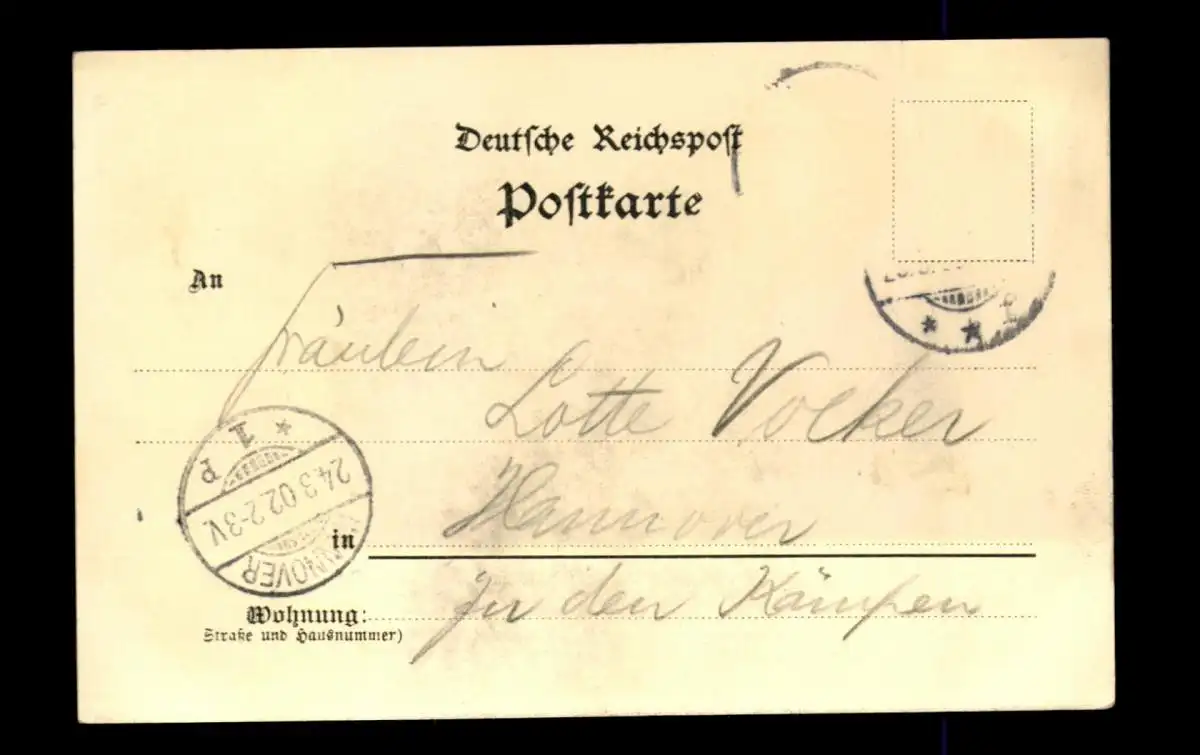 Deutsche Reichspost
Postkarte
An
Fräulein
Lotte Volker
in Hannover
Wohnung: In den Kämpen
Straße und Hausnummer)
HANNOVER
24.3.02.2-3V.
* 1 P
* *